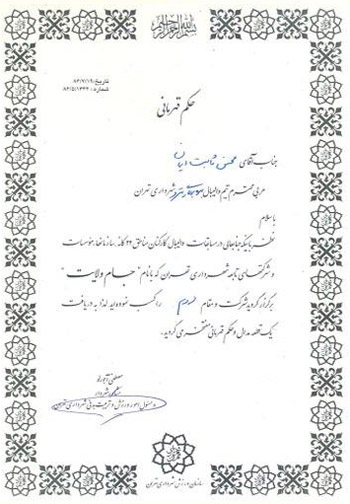 بسم الله الرحمن الرحیم
تاریخ: ۸۶/۷/۱۹
شماره: ۸۶/۵/۱۳۳۳
حکم قهرمانی
جناب آقای محسن ثابت
مربی محترم تیم والیبال شهرداری تهران
با سلام
نظر باینکه جنابعالی در مسابقات والیبال کارکنان مناطق ۲۲ گانه، سازمانها، موسسات
و شرکتهای تابعه شهرداری تهران که با نام " جـام ولایـت "
برگزار گردید شرکت و مقام سوم را کسب نموده‌اید لذا به دریافت
یک قطعه مدال و حکم قهرمانی مفتخر می گردید.
مصطفی آجورلو
مشاور شهردار
و مسئول امور ورزش و تربیت بدنی شهرداری تهران
سازمان ورزش شهرداری تهران